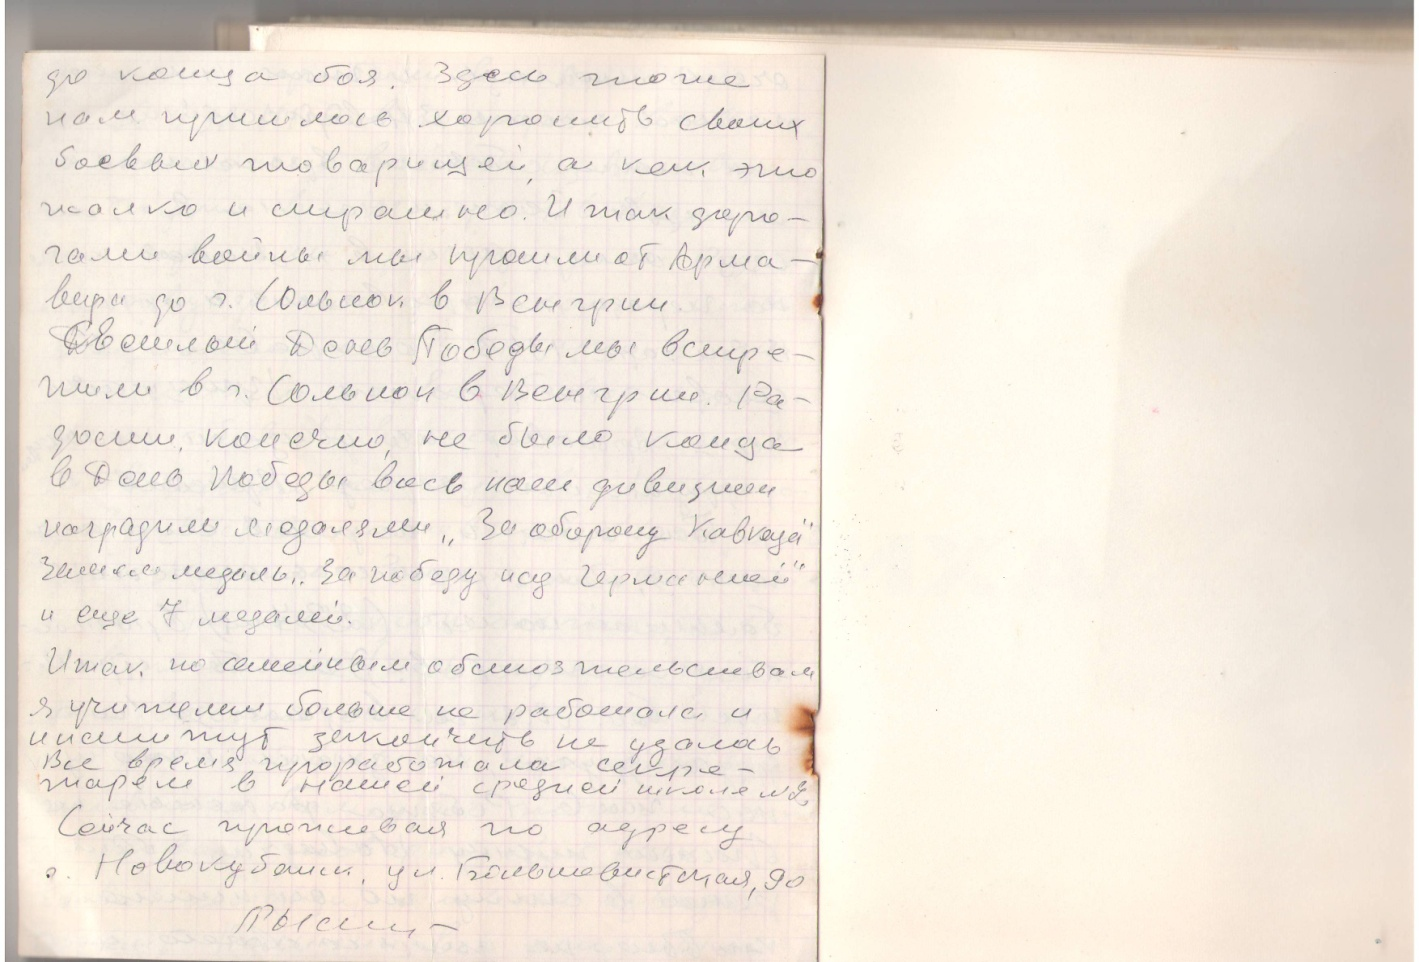 до конца боя. Здесь тоже
нам пришлось хоронить своих
боевых товарищей, а как это
жалко и страшно. И так доро-
гами войны мы прошли от Арма-
вира до г. Сольнок в Венгрии.
Светлый День Победы мы встре-
тили в г. Сольнок в Венгрии. Ра-
дости, конечно, не было конца
в День Победы весь наш дивизион
наградили медалями „За оборону Кавказа"
Затем медаль „За победу над Германией"
и еще 7 медалей.
Итак, по семейным обстоятельствам
я учителем больше не работала и
институт закончить не удалось
Все время проработала секре-
тарем в нашей средней школе №2,
Сейчас проживая по адресу
г. Новокубанск, ул. Большевистская, 90